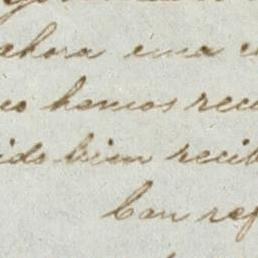 ahora una
hemos reci
ido bien recib
Con ref